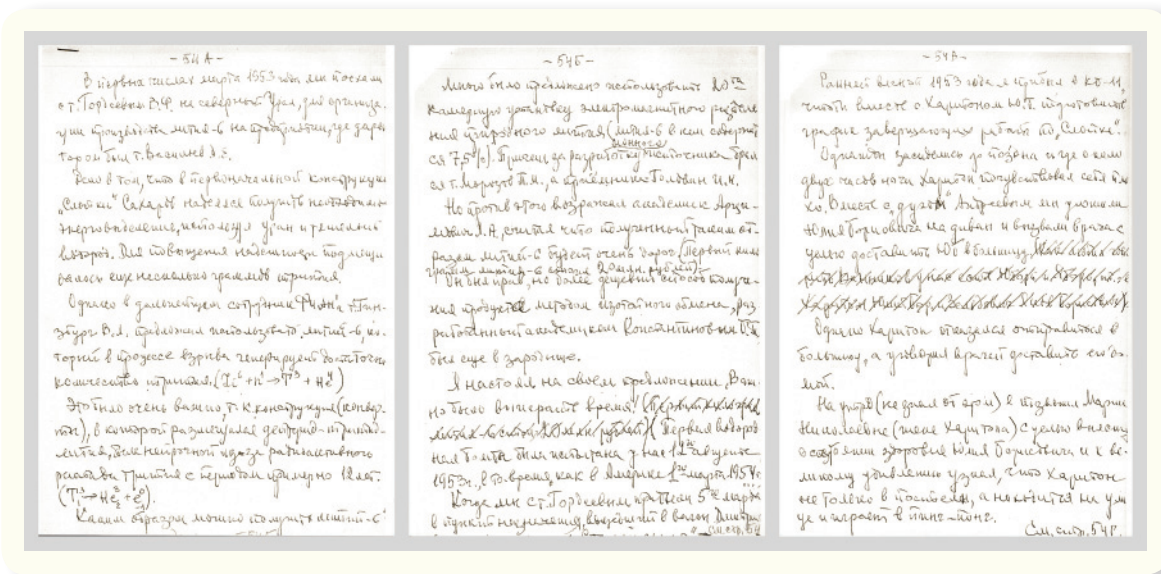 - 54А -
В первых числах марта 1953 года мы поехали
с т. Гордеевым В.Ф. на северный Урал, для организа-
ции производства лития-6 на предприятии, где дирек-
тором был т. Васильев Д.Е.
Дело в том, что в первоначальной конструкции
"Слойки" Сахаров надеялся получить необходимое
энерговыделение, используя уран и тяжелый
водород. Для повышения надежности
еще несколько граммов трития.
Однако в дальнейшем сотрудник ФИАН'а т. Гин-
збург В.Л. предложил использовать литий-6, ко-
торый в процессе взрыва генерирует достаточное
количество трития. (Li⁶ + n¹ → T³ + He⁴)
Это было очень важно, т.к. конструкция
в которой размещался дейтерид-тритид-
лития, была непрочной из-за радиоактивного
распада трития с периодом примерно 12 лет.
Каким образом можно получить литий-6?
- 54Б -
Мною было предложено использовать 20ти
камерную установку электромагнитного разделе-
ния природного лития (лития-6 в нем содержит-
ся 7,5%). Причем за разработку ионного источника брал-
ся т. Морозов П.М., а приёмника Головин И.Н.
Но против этого возражал академик Арци-
мович Л.А., считая что полученный таким об-
разом литий-6 будет очень дорог. (Первый кило-
грамм лития-6 стоил 20 млн. рублей).
Он был прав, но более дешевый способ получе-
ния продукта методом изотопного обмена, раз-
работанный академиком Константиновым Б.П.
был еще в зародыше.
Я настоял на своем предложении. Важ-
но было выиграть время!
Первая водород-
ная бомба была испытана у нас 12го августа
1953г., в то время, как в Америке 1го марта 1954г.
Когда мы с т. Гордеевым приехали 5го марта
в пункт назначения, вошедший в вагон
см. стр. 54
- 54В -
Ранней весной 1953 года я прибыл в КБ-11,
чтобы вместе с Харитоном Ю.Б. подготовить
график завершающих работ по "Слойке".
Однажды засиделись до поздна и где-то около
двух часов ночи Харитон почувствовал себя пло-
хо. Вместе с "духом" Андреевым мы уложили
Юлия Борисовича на диван и вызвали врача с
целью доставить Ю Б в больницу.
Однако Харитон отказался отправиться в
больницу, а уговорил врачей доставить его до-
мой.
На утро я позвонил Марии
Николаевне (жене Харитона) с целью
о состоянии здоровья Юлия Борисовича и к ве-
ликому удивлению узнал, что Харитон
не только в постели, а находится на ули-
це и играет в пинг-понг.
См. стр. 54Г.